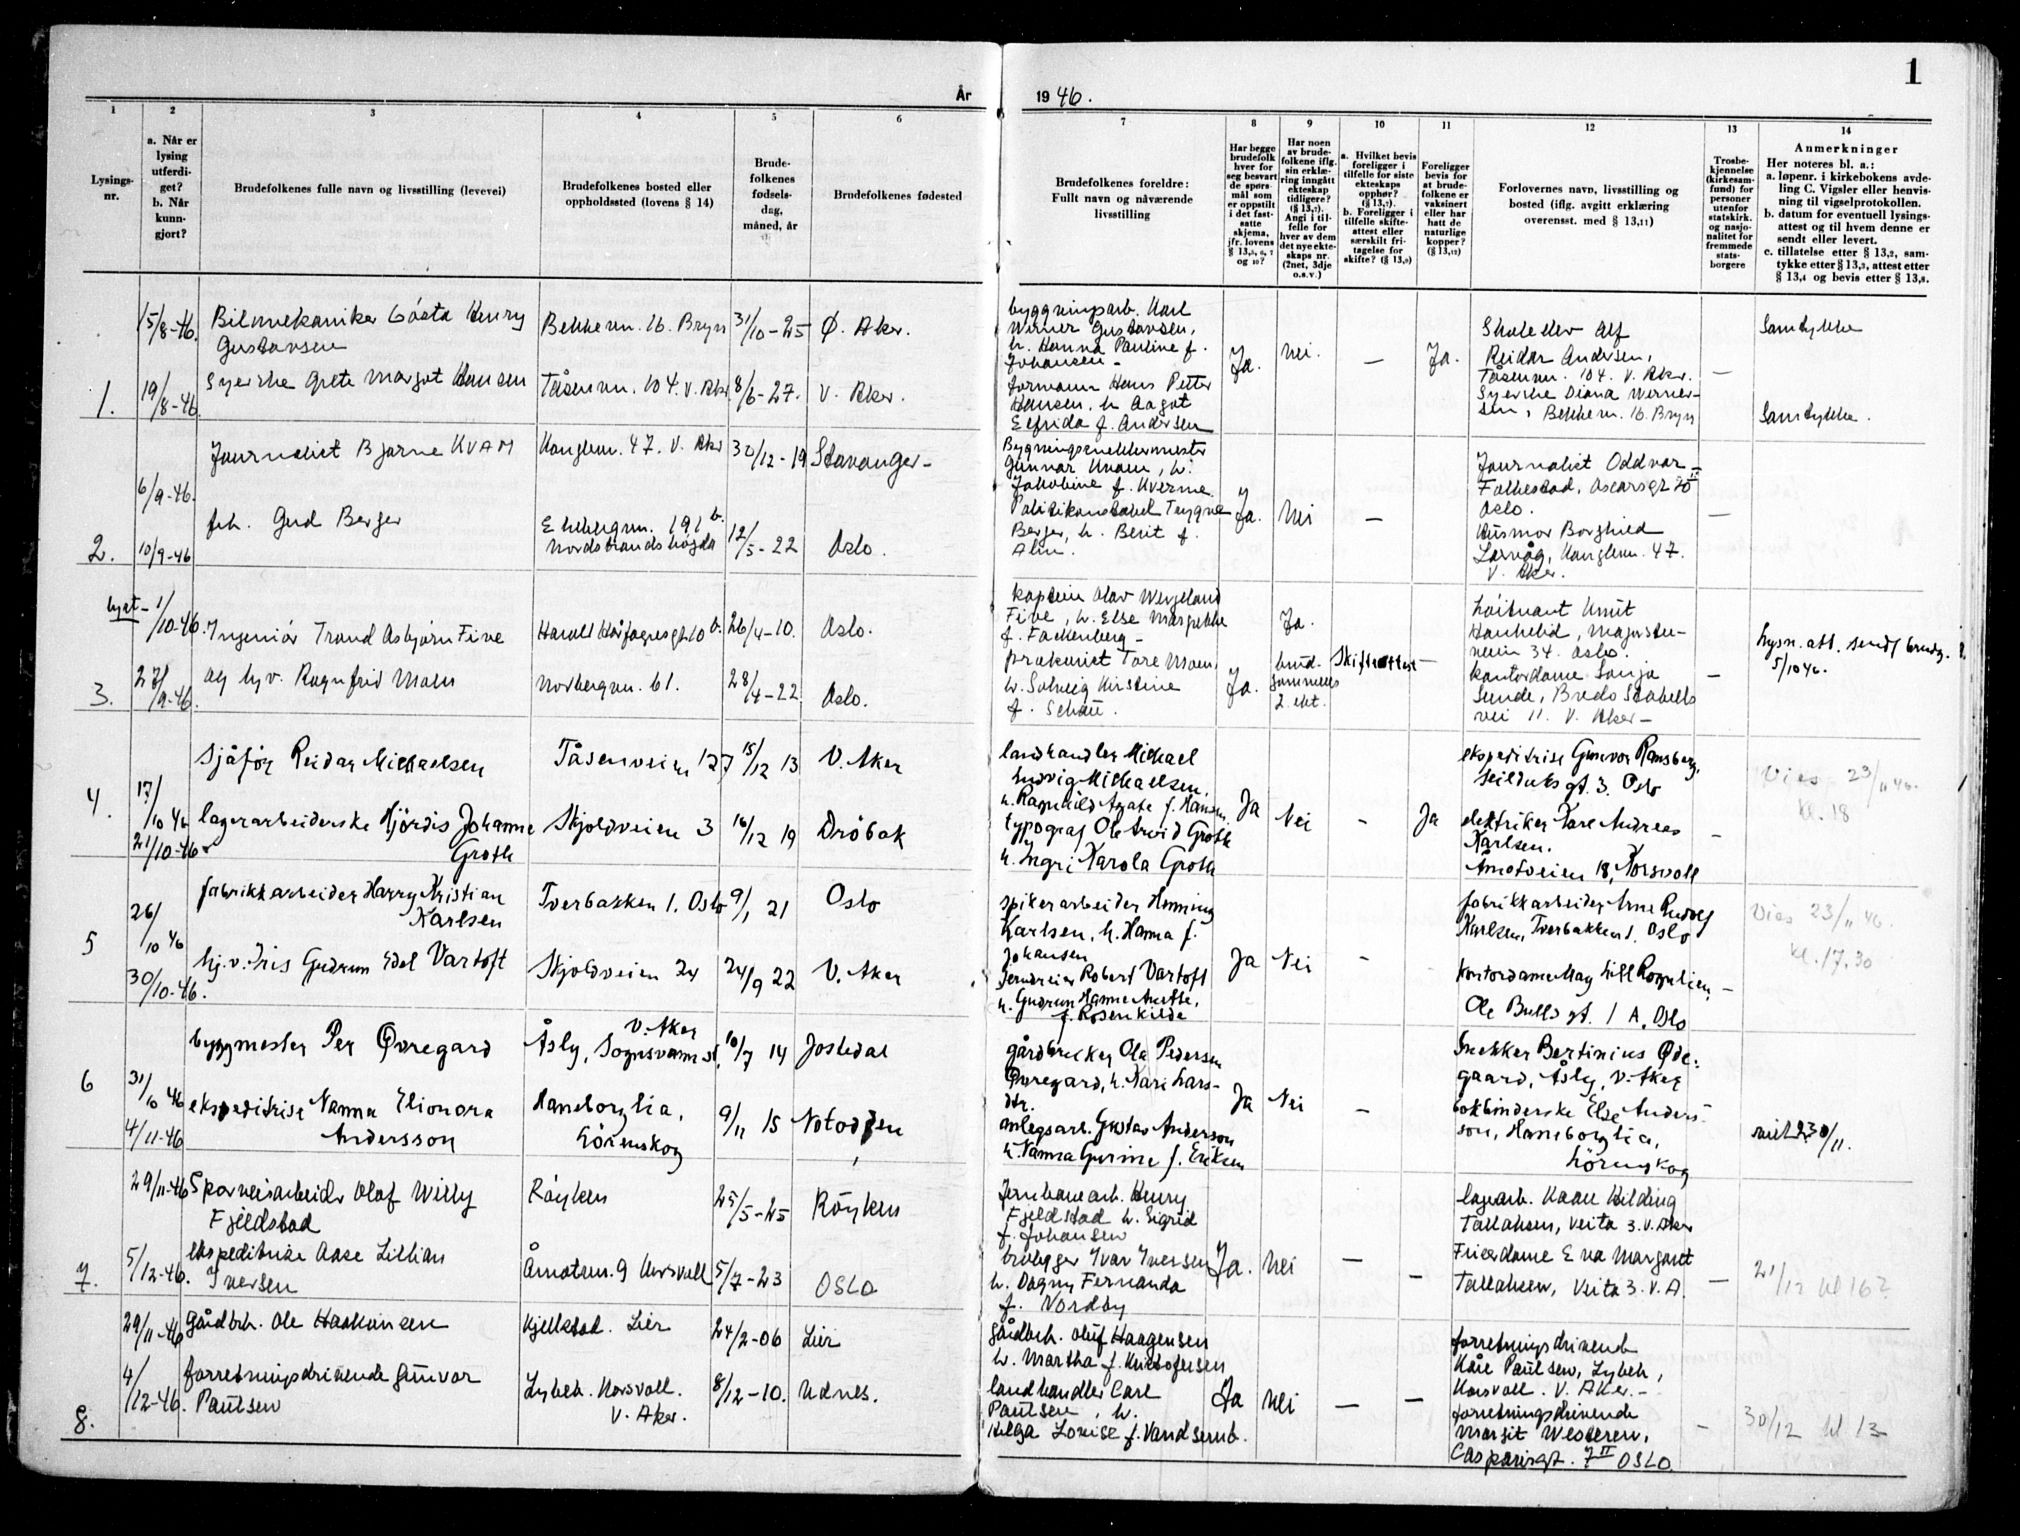 1
År
19 46.
1
2
3
4
5
6
7
8
9
10
11
12
13
14
Lysings-
nr.
a. Når er
lysing
utferdi-
get?
b. Når
kunn-
gjort?
Brudefolkenes fulle navn og livsstilling (levevei)
Brudefolkenes bosted eller
oppholdssted (lovens § 14)
Brude-
folkenes
fødsels-
dag,
måned, år
Brudefolkenes fødested
Brudefolkenes foreldre:
Fullt navn og nåværende
livsstilling
Har begge
brudefolk
hver for
seg besvart
de spørs-
mål som
er oppstilt
i det fast-
satte
skjema,
jfr. lovens
§ 13,5, 6, 7
og 10?
Har noen
av brude-
folkene iflg.
sin erklæ-
ring inngått
ekteskap
tidligere?
(§ 13,7).
Angi i til-
felle for
hver av dem
det nye ekte-
skaps nr.
(2net, 3dje
o.s.v.)
a. Hvilket bevis
foreligger i
tilfelle for siste
ekteskaps
opphør?
(§ 13,7).
b. Foreligger i
tilfelle skifte-
attest eller
særskilt fri-
tagelse for
skifte? (§ 13,9)
Foreligger
bevis for
at brude-
folkene er
vaksinert
eller har
hatt de
naturlige
kopper?
(§ 13,12)
Forlovernes navn, livsstilling og
bosted (iflg. avgitt erklæring
overensst. med § 13,11)
Trosbe-
kjennelse
(kirkesam-
fund) for
personer
utenfor
statskirk.
og nasjo-
nalitet for
fremmede
stats-
borgere
Anmerkninger
Her noteres bl. a.:
a. løpenr. i kirkebokens avde-
ling C. Vigsler eller henvis-
ning til vigselprotokollen.
b. datum for eventuell lysings-
attest og til hvem denne er
sendt eller levert.
c. tillatelse etter § 13,2, sam-
tykke etter § 13,3, attest etter
§ 13,4 og bevis etter § 13,8.
1.
15/8-46.
19/8-46.
Bilmekaniker Gösta Henry
Gustavsen
Syerske Grete Margot Hansen
Bekkevn. 16. Bryn
Tåsenvn. 104. V. Aker
31/10-25
8/6-27.
Ø. Aker.
V. Aker.
byggningsarb. Karl
Werner Gustavsen,
h. Hanna Pauline f.
Johansen -
formann Hans Petter
Hansen, h. Aagot
Elfrida f. Andersen
Ja.
Nei.
—
Ja.
Skoleelev Alf
Reidar Andersen,
Tåsenvn. 104. V. Aker.
Syerske Diana Werner-
sen, Bekkevn. 16. Bryn
—
Samtykke
Samtykke.
2.
6/9-46.
10/9-46
Journalist Bjarne KVAM
frk. Gerd Berger
Konglevn. 47. V. Aker
Ekebergvn. 191 b.
Nordstrandshøgda
30/12-19
12/5-22
Stavanger-
Oslo.
Bygningssnekkermester
Gunnar Kvam, h.
Jakobine f. Kverme.
Politikonstabel Trygve
Berger, h. Berit f.
Alm.
Ja.
Nei
—
Journalist Oddvar
Folkestad, Oscarsgt 70 II
Oslo.
Husmor Borghild
Larvåg, Konglevn. 47.
V. Aker.
—
3.
lyst-
1/10-46.
27/9-46.
Ingeniør Trond Asbjørn Five
og hv. Ragnfrid Moen
Harald Hårfagresgt. 10 b.
Norbergvn. 61.
26/4-10.
28/4-22
Oslo.
Oslo.
kaptein Olav Wergeland
Five, h. Else Margrethe
f. Falkenberg -
prokurist Tore Moen
h. Solveig Kirstine
f. Schau.
Ja.
Ja.
brud-
gommens
2. ekt.
Skifteattest
—
Løitnant Knut
Haukelid, Magister-
veien 34. Oslo.
kontordame Sonja
Sunde, Bredo Stabells
vei 11. V. Aker -
—
Lysn. att. sendt brudg.
5/10 46.
4.
17/10 46
21/10-46
Sjåfør Reidar Michaelsen
lagerarbeiderske Hjørdis Johanne
Groth
Tåsenveien 127
Skjoldveien 3
15/12 13
16/12 19
V. Aker
Drøbak
landhandler Michael
Ludvig Michaelsen,
h. Ragnhild Agate f. Hansen.
typograf Ole Arvid Groth
h. Ingri Karola Groth
Ja
Nei
-
Ja
ekspeditrise Gunvor Ramsberg,
Seilduksgt. 3. Oslo
elektriker Kåre Andreas
Karlsen.
Åmotveien 18, Korsvoll
—
Vies 23/11 46.
kl. 18
5
26/10 46
30/10-46.
fabrikkarbeider Harry Kristian
Karlsen
hj.v. Iris Gudrun Edel Vartoft
Tverbakken 1. Oslo
Skjoldveien 24
9/1 21
24/9 22
Oslo
V. Aker
spikerarbeider Henning
Karlsen, h. Hanna f.
Johansen
Jerndreier Robert Vartoft
h. Gudrun Hanne Anette,
f. Rosenkilde
Ja
Nei
-
fabrikkarbeider Arne Rudolf
Karlsen, Tverbakken 1. Oslo
kontordame May Lill Rognlien,
Ole Bulls gt. 1 A, Oslo
—
Vies 23/11 46.
kl. 17,30
6
31/10 46
4/11-46
byggmester Per Øvregard
ekspeditrise Nanna Elionora
Andersson
V. Aker
Åsly, Sognsvann st.
Haneborglia,
Lörenskog
10/7 14
9/11 15
Jostedal
Notodden
gårdbruker Ola Pedersen
Øvregard, h. Kari Lars-
dtr.
anlegsarb. Gustav Anderson
h. Nanna Gurine f. Eriksen
Ja
Nei
—
Snekker Bertinius Øde-
gaard, Åsly, V. Aker
bokbinderske Else Anders-
son, Haneborglia,
Lörenskog
30/11.
7.
29/11-46
5/12-46.
Sporveisarbeider Olaf Willy
Fjeldstad
ekspeditrise Aase Lillian
Iversen
Röyken
Åmotvn. 9 Korsvoll
25/5-25
5/7-23
Röyken
OSLO
Jernbanearb. Henry
Fjeldstad h. Sigrid
f. Johansen
brolegger Ivar Iversen
h. Dagny Fernanda
f. Nordby
Ja.
Nei
—
—
lagerarb. Kaare Hilding
Tallaksen, Veita 3. V. Aker
Friserdame Eva Margaret
Tallaksen, Veita 3. V. A.
—
21/12 kl 16?
8.
29/11-46
4/12-46.
gårdbr. Ole Haakonsen
forretningsdrivende Gunvor
Paulsen
Kjellstad. Lier
Lybek. Korsvoll.
V. Aker.
24/2-06
8/12-10.
Lier
Udnes.
Gårdbr. Oluf Haagensen
h. Martha f. Kristofersen
landhandler Carl
Paulsen, h.
Helga Lovise f. Vandsemb.
Ja
Nei
—
—
forretningsdrivende
Kåre Paulsen, Lybek,
Korsvoll. V. Aker.-
forretningsdrivende
Margit Westeren,
Casparisgt. 7 II OSLO.
-
30/12 kl 13-